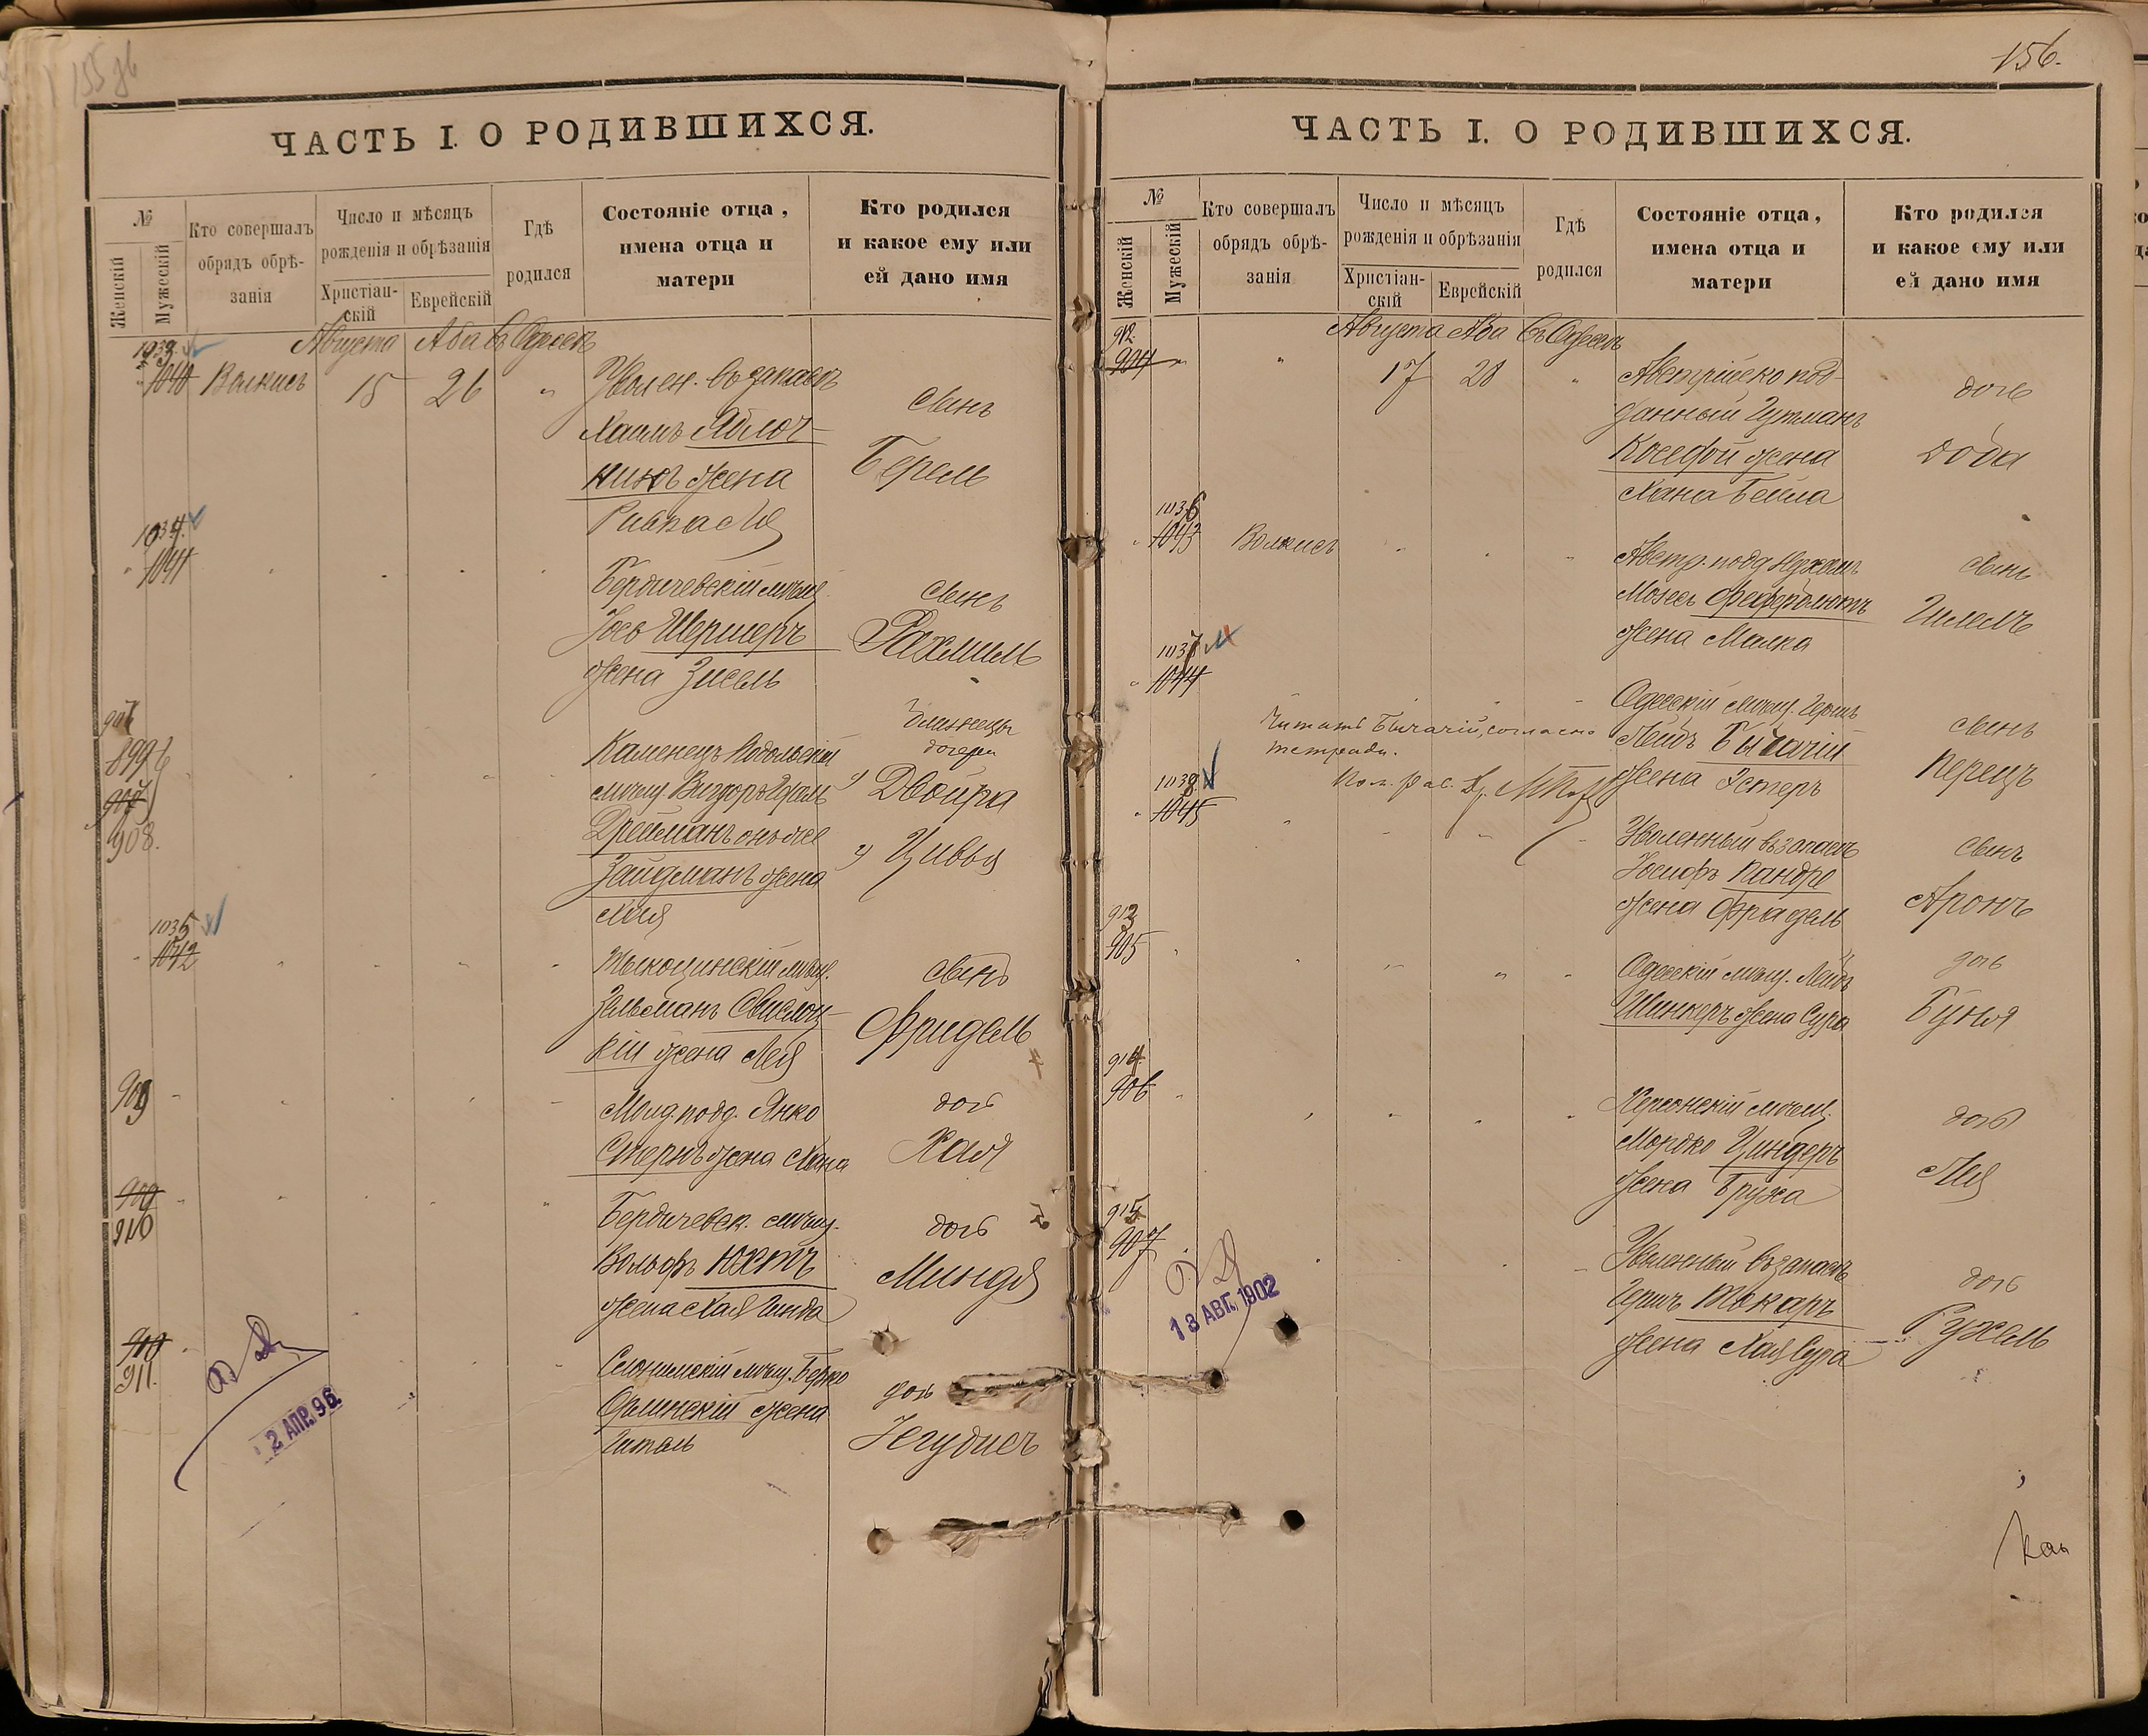 155 об
ЧАСТЬ I. О РОДИВШИХСЯ.
№
Женскій
Мужескій
Кто совершалъ
обрядъ обрѣ-
занія
Число и мѣсяцъ
рожденія и обрѣзанія
Христіан-
скій
Еврейскій
Гдѣ
родился
Состояніе отца,
имена отца и
матери
Кто родился
и какое ему или
ей дано имя
Августа Аба Въ Одессѣ
1033.
1040 Волкисъ 15 26 " Уволен. въ запасъ сынъ
Хаимъ Яблоч-
никъ жена Берель
Ривка Лея
1034.
1041
Бердичевскій мѣщ. сынъ
Іось Шермеръ Рахмиль
жена Зисель
907
899
908.
близнецы
дочери
Каменецъ Подольскій
мѣщ. 1) Двойра
Дрейманъ онъ же 2) Цивья
Зайдманъ жена
Хая
1035
1042
Тыкоцинскій мѣщ. сынъ
Зельманъ Свислоц-
кій жена Лея Фридель
909
Молд. подд. Янко дочь
Стернъ жена Хана Хая
909
910
Бердичевск. мѣщ. дочь
Вольфъ Юхтъ Миндя
жена Хая Гинда
910
911.
Слонимскій мѣщ. Берко дочь
жена
Гитель Іегудисъ
2 АПР. 96.
156.
ЧАСТЬ I. О РОДИВШИХСЯ.
№
Женскій
Мужескій
Кто совершалъ
обрядъ обрѣ-
занія
Число и мѣсяцъ
рожденія и обрѣзанія
Христіан-
скій
Еврейскій
Гдѣ
родился
Состояніе отца,
имена отца и
матери
Кто родился
и какое ему или
ей дано имя
Августа Аба Въ Одессѣ
912.
904 " " 17 28 " Австрійско под- дочь
данный Гутманъ
жена Доба
Хана Бейла
1036
1043 Волкисъ Австр. подд. сынъ
Мозесъ Гилель
жена Малка
1037
1044
Одесскій мѣщ. Гершъ сынъ
Лейбъ Бычачій
жена Эстеръ Перецъ
Читать Бычачій, согласно
тетради.
Пом. Рав.
1038.
1045
Уволенный въ запасъ сынъ
Іосифъ Кандре
жена Фрадель Аронъ
913
905
Одесскій мѣщ. Лейбъ дочь
Шинкеръ жена Сура Буня
914.
906
Херсонскій мѣщ. дочь
Мордко Циндеръ
жена Бруха Лея
915
907
Уволенный въ запасъ дочь
Гершъ Токаръ
жена Хая Сура Рухель
13 АВГ. 1902